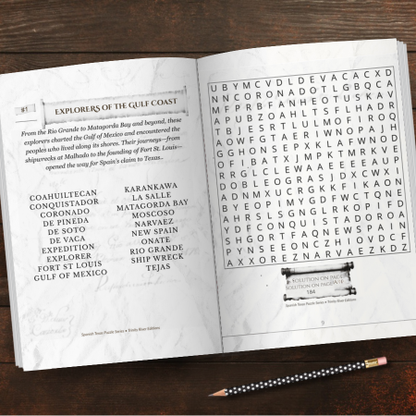 #1
EXPLORERS OF THE GULF COAST
From the Rio Grande to Matagorda Bay and beyond, these
explorers charted the Gulf of Mexico and encountered the
peoples who lived along its shores. Their journeys—from
shipwrecks at Malhado to the founding of Fort St. Louis—
opened the way for Spain's claim to Texas.
COAHUILTECAN
CONQUISTADOR
CORONADO
DE PINEDA
DE SOTO
DE VACA
EXPEDITION
EXPLORER
FORT ST LOUIS
GULF OF MEXICO
KARANKAWA
LA SALLE
MATAGORDA BAY
MOSCOSO
NARVAEZ
NEW SPAIN
ONATE
RIO GRANDE
SHIP WRECK
TEJAS
Spanish Texas Puzzle Series • Trinity River Editions
UBYMCVDLDEVACACXD
NNCORONADOTLGBQCA
MFPRBFANHEOTUSKAV
APUBZOAHLTSFLHADR
TBJESRTLULMOFIROQ
AOWFGTAERIWNOPAJH
GGHONSEPXKLAFWNOD
OFIBATXJMPKTMRKVE
RRGLCLEWAAEEEEAUP
DOBLEOGRASJDXCWXI
ADNMXUCRGKKFIKAON
BYEOPIMYGDFWCTQNE
AHRSLSGNGLRKOPIFD
YDFCONQUISTADOROA
SHGORTFAQNEWSPAIN
PYNSEEONCZHIOVDCF
AXXOREZNARVAEZKDZ
SOLUTION ON PAGE
184
Spanish Texas Puzzle Series • Trinity River Editions